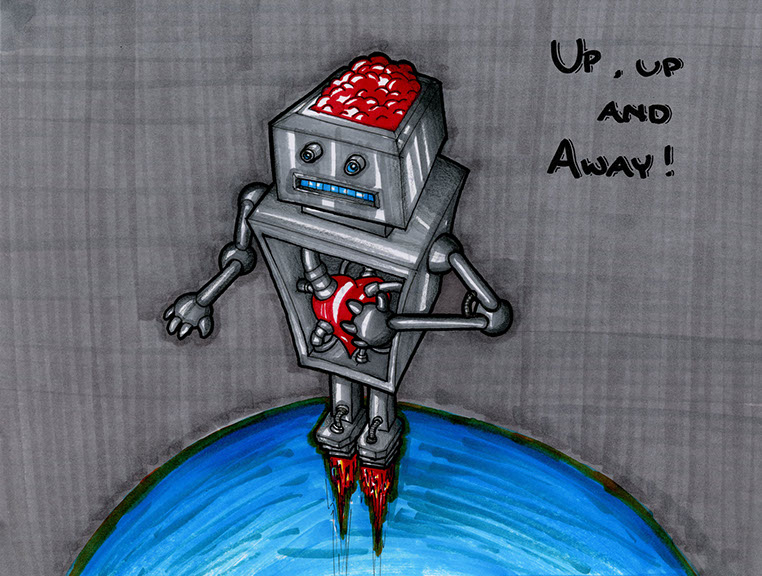 Up, up
and
Away!